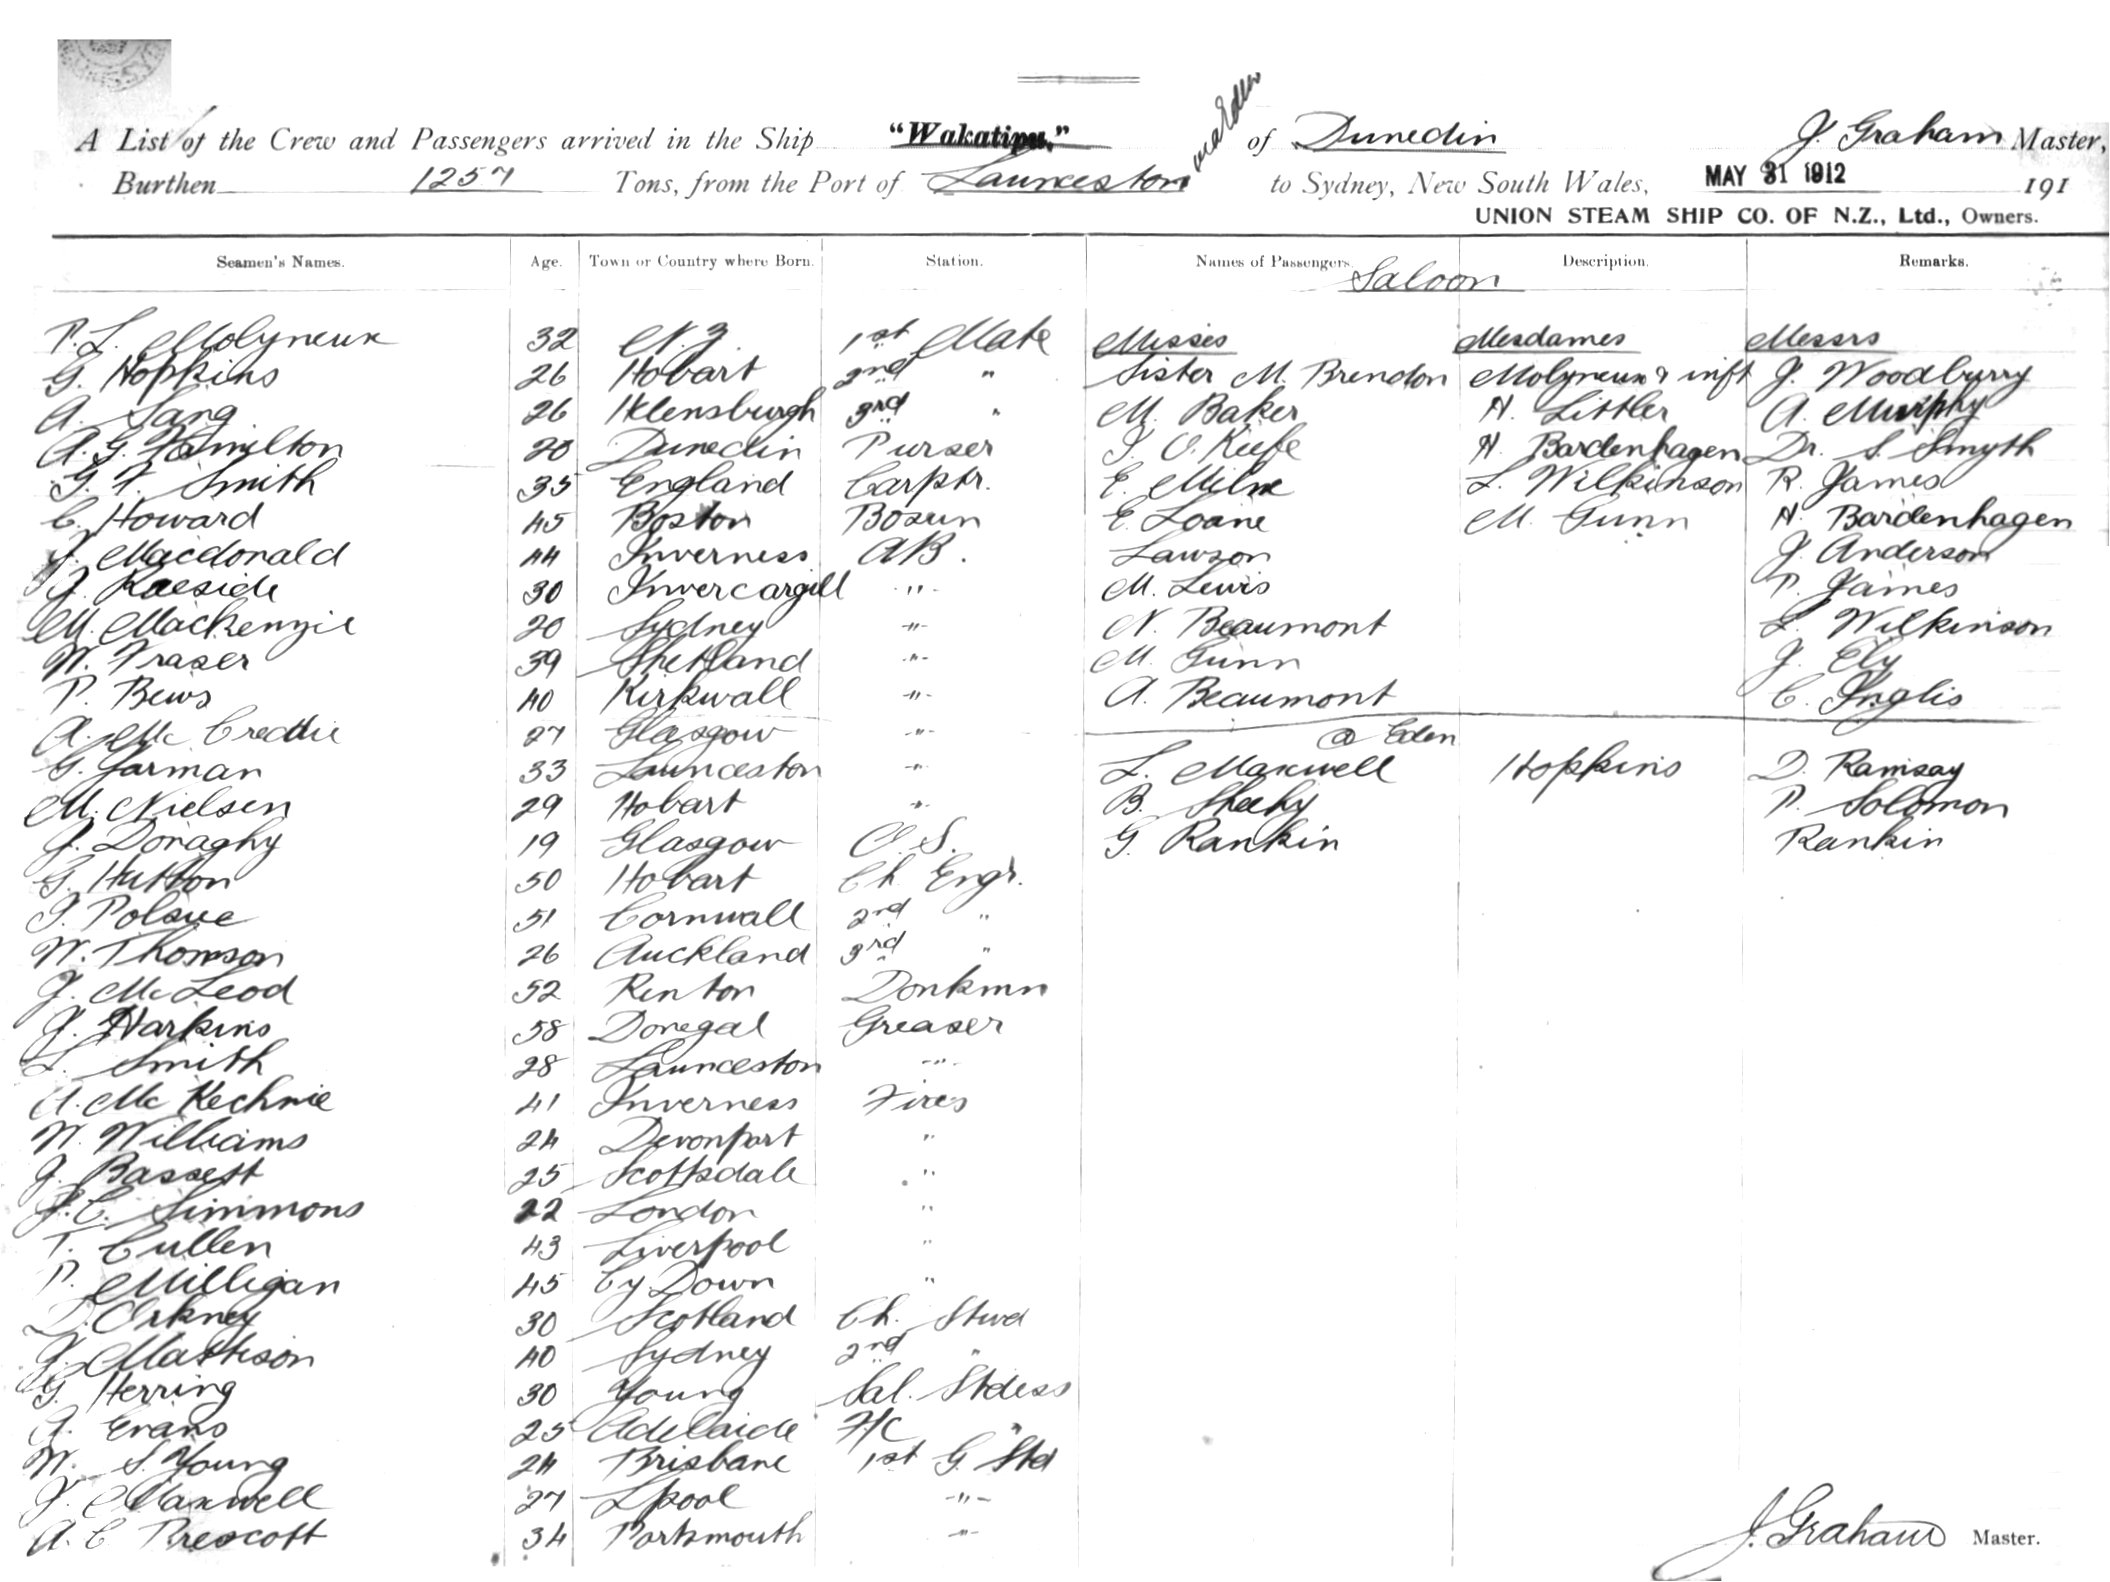 A List of the Crew and Passengers arrived in the Ship "Wakatipu." via Eden of Dunedin J. Graham Master,
Burthen 1257 Tons, from the Port of Launceston to Sydney, New South Wales, MAY 31 1912 191
UNION STEAM SHIP CO. OF N.Z., Ltd., Owners.
Seamen's Names. Age. Town or Country where Born. Station. Names of Passengers. Description. Remarks.
Saloon
P. L. Molyneux 32 N. Z. 1st Mate Misses Mesdames Messrs
G. Hopkins 26 Hobart 2nd " Sister M. Brendon Molyneux & inft J. Woodburry
A. Lang 26 Helensburgh 3rd " M. Baker H. Littler A. Murphy
A. G. Hamilton 20 Dunedin Purser J. O. Keefe H. Bardenhagen Dr. S. Smyth
G. F. Smith 35 England Carptr. E. Milne L. Wilkinson R. James
C. Howard 45 Boston Bosun E. Loane M. Gunn H. Bardenhagen
J. Macdonald 44 Inverness AB. Lawson J. Anderson
J. Raeside 30 Invercargill " M. Lewis P. James
M. Mackenzie 20 Sydney " N. Beaumont L. Wilkinson
W. Fraser 39 Shetland " M. Gunn J. Ely
P. Bews 40 Kirkwall " A. Beaumont C. Inglis
A. Mc Creadie 27 Glasgow " @ Eden
G. Jarman 33 Launceston " L. Maxwell Hopkins D. Ramsay
M. Nielsen 29 Hobart " B. Sheehy P. Solomon
J. Donaghy 19 Glasgow O. S. G. Rankin Rankin
G. Hutton 50 Hobart Ch. Engr.
J. Polsue 51 Cornwall 2nd "
W. Thomson 26 Auckland 3rd "
J. McLeod 52 Renton Donkmn
J. Harkins 58 Donegal Greaser
L. Smith 28 Launceston "
A. Mc Kechnie 41 Inverness Fires
W. Williams 24 Devonport "
J. Bassett 25 Scottsdale "
J. C. Simmons 22 London "
T. Cullen 43 Liverpool "
P. Milligan 45 Cy Down "
D. Orkney 30 Scotland Ch. Stwd
J. Mattison 40 Sydney 2nd "
G. Herring 30 Young Sal. Stdess
A. Evans 25 Adelaide F/C "
W. S. Young 24 Brisbane 1st G. Std
J. Maxwell 27 Lpool "
A. C Prescott 34 Portsmouth "
J. Graham Master.